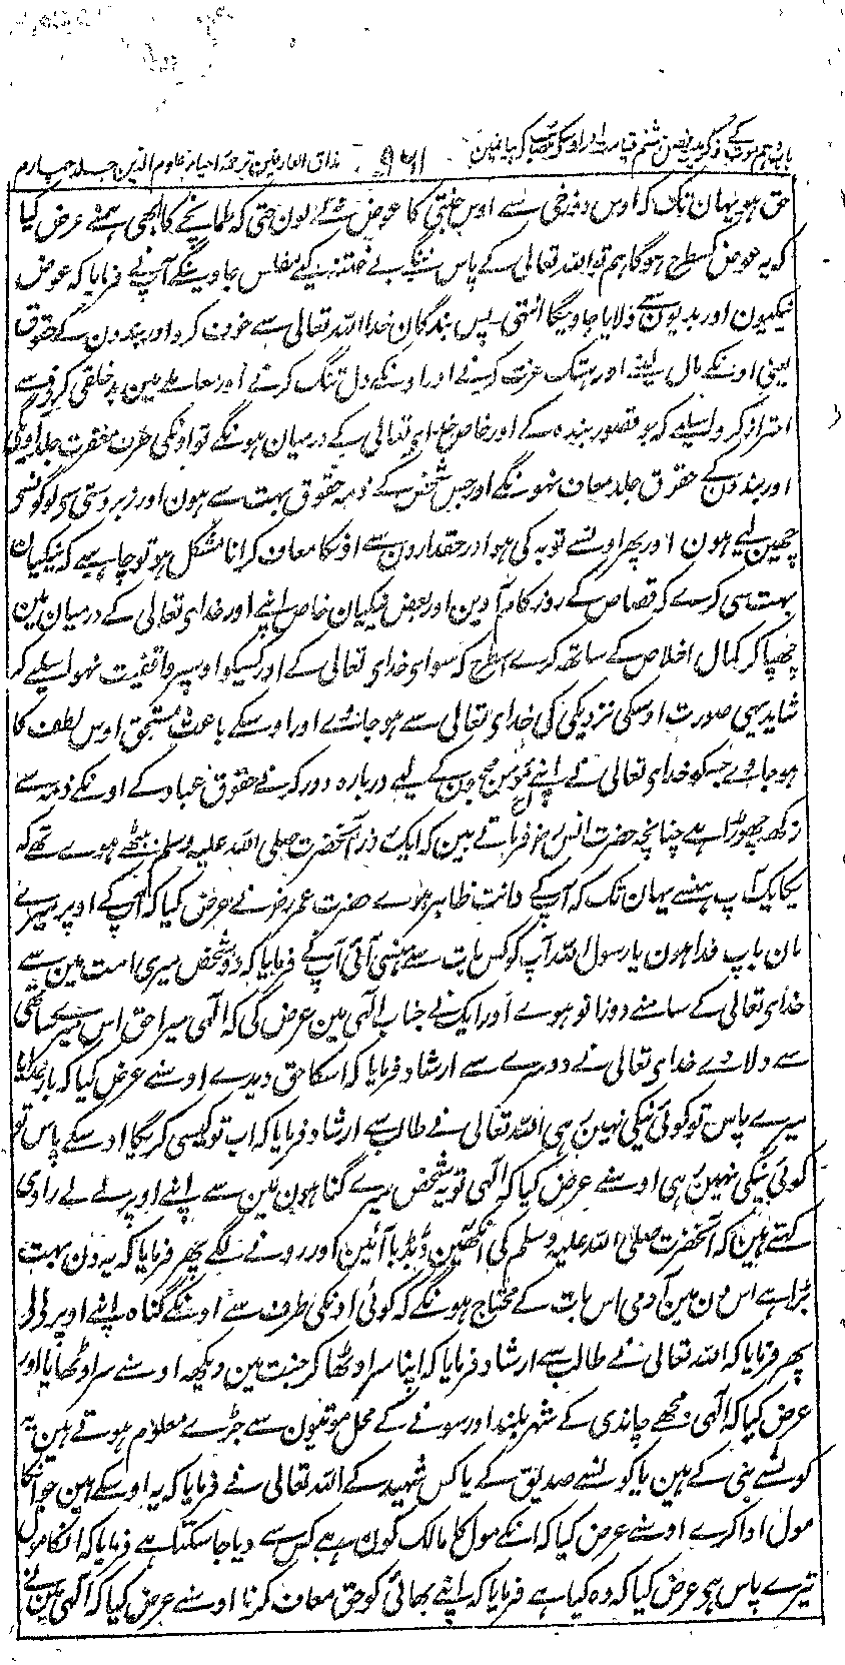 مذاق العارفین ترجمہ احیاء علوم الدین جلد چہارم
حق ہو یہان تک کہ اوس دوزخی سے اوس جنتی کا عوض نہ لے لون حتی کہ طمانچے کا بھی ہمنے عرض کیا
کہ یہ عوض کسطرح ہوگا ہم تو اللہ تعالی کے پاس ننگے بے ختنہ کیے مفلس جاوینگے آپ نے فرمایا کہ عوض
نیکیون اور بدیون سے دلایا جاویگا انتہی پس بندگان خدا اللہ تعالی سے خوف کرو اور بندون کے حقوق
یعنی اونکے مال لینے اور ہتک عزت کرنے اور اونکے دل تنگ کرنے اور معاملے مین بد خلقی کرنے سے
احتراز کرو اسلیے کہ جو قصور بندہ کے اور خاص خدای تعالی کے درمیان ہونگے تو اونکی طرف مغفرت جلد آویگی
اور بندون کے حقوق جلد معاف نہونگے اور جس شخص کے ذمہ حقوق بہت سے ہون اور زبردستی سے لوگونسے
چھین لیے ہون اور پھر اوسنے توبہ کی ہو اور حقدارون سے اونکا معاف کرانا مشکل ہو تو چاہیے کہ نیکیان
بہت سی کرے کہ قصاص کے روز کام آوین اور بعض نیکیان خاص اپنے اور خدای تعالی کے درمیان مین
چھپا کر کمال اخلاص کے ساتھ کرے اسطرح کہ سوای خدای تعالی کے اور کسیکو اوسپر واقفیت نہو اسلیے کہ
شاید یہی صورت اوسکی نزدیکی کی خدای تعالی سے ہو جاوے اور اوسکے باعث مستحق اوس لطف کا
ہو جاوے جسکو خدای تعالی نے اپنے مومن محبون کے لیے دربارہ دور کرنے حقوق عباد کے اونکے ذمہ سے
رکھ چھوڑا ہے چنانچہ حضرت انس رض فرماتے ہین کہ ایک روز آنحضرت صلی اللہ علیہ وسلم بیٹھے ہوے تھے کہ
یکایک آپ ہنسے یہان تک کہ آپ کے دانت ظاہر ہوے حضرت عمر رض نے عرض کیا کہ آپ کے اوپر میرے
مان باپ فدا ہون یا رسول اللہ آپ کو کس بات سے ہنسی آئی آپ نے فرمایا کہ دو شخص میری امت مین سے
خدای تعالی کے سامنے دوزانو ہوے اور ایک نے جناب الہی مین عرض کی کہ الہی میرا حق اس میرے ساتھی
سے دلا دے خدای تعالی نے دوسرے سے ارشاد فرمایا کہ اسکا حق دیدے اوسنے عرض کیا کہ بار خدایا
میرے پاس تو کوئی نیکی نہین رہی اللہ تعالی نے طالب سے ارشاد فرمایا کہ اب تو کیسی کریگا اوسکے پاس تو
کوئی نیکی نہین رہی اوسنے عرض کیا کہ الہی تو یہ شخص میرے گناہون مین سے اپنے اوپر لے لے راوی
کہتے ہین کہ آنحضرت صلی اللہ علیہ وسلم کی آنکھین ڈبڈبا آئین اور رونے لگے پھر فرمایا کہ یہ دن بہت
بڑا ہے اس دن مین آدمی اس بات کے محتاج ہونگے کہ کوئی اونکی طرف سے اونکے گناہ اپنے اوپر لے لے
پھر فرمایا کہ اللہ تعالی نے طالب سے ارشاد فرمایا کہ اپنا سر اوٹھا کر جنت مین دیکھ اوسنے سر اوٹھایا اور
عرض کیا کہ الہی مجھے چاندی کے شہر بلند اور سونے کے محل موتیون سے جڑے معلوم ہوتے ہین یہ
کونسے نبی کے ہین یا کونسے صدیق کے یا کس شہید کے اللہ تعالی نے فرمایا کہ یہ اوسکے ہین جو انکا
مول ادا کرے اوسنے عرض کیا کہ انکے مول کا مالک کون ہے کس سے دیا جا سکتا ہے فرمایا کہ انکا مول
تیرے پاس ہے عرض کیا کہ وہ کیا ہے فرمایا کہ اپنے بھائی کو حق معاف کرنا اوسنے عرض کیا کہ الہی مین نے